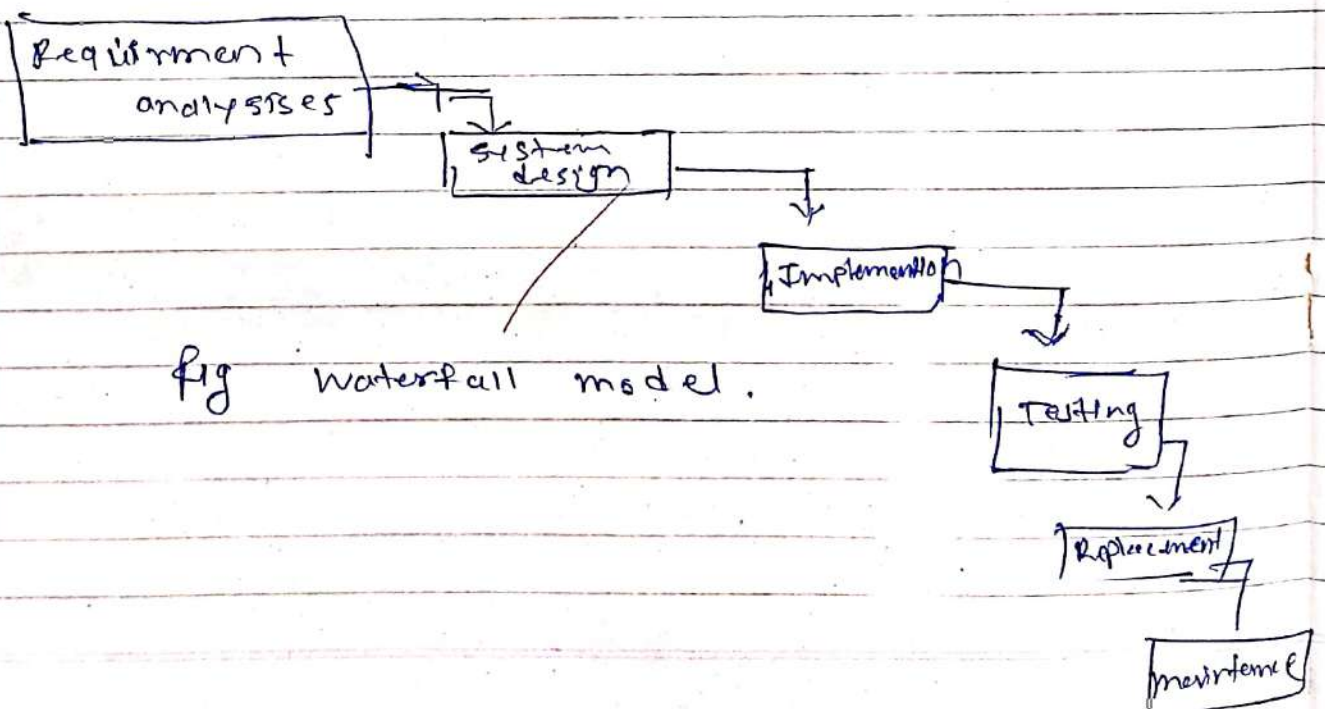 Requirment
analysises
system
design
Implemention
fig waterfall model.
Testing
Replacement